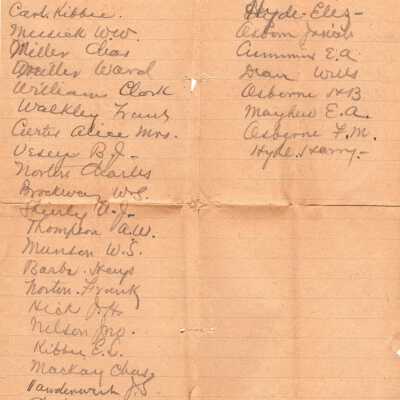 Carl. Kibbie.
Messick W.W.
Miller Chas
Miller Ward
William Clark
Walkley Frank
Curtis Alice Mrs.
Vesey B.J-
Norton Charles
Brockway W.S.
Shirly U.J-
Thompson A.W.
Munson W.S.
Barba. Hays
Norton. Frank
Hick J.H.
Nelson Jno.
Kibbie E.L.
Mackay Chas
J.S.
Hyde-Eles-
Osborn
Cummins E.A.
Dean Wills
Osborne H.B.
Mayhew E.A.
Osborne F.M.
Hyde. Harry.-